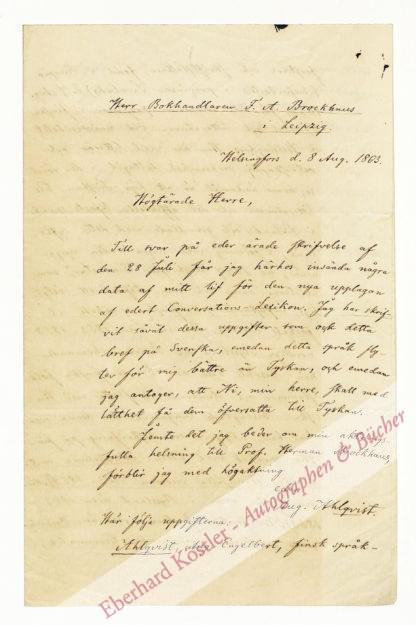 Herr Bokhandlaren F. A. Brockhaus
i Leipzig.
Helsingfors d. 8 Aug. 1863.
Högtärade Herre,
Till svar på eder ärade skrifvelse af
den 28 Juli får jag härhos insända några
data af mitt lif för den nya upplagan
af edert Conversations-Lexikon. Jag har skrif-
vit såväl dessa uppgifter som och detta
bref på Svenska, emedan detta språk fly-
ter för mig bättre än Tyskan, och emedan
jag antager, att Ni, min herre, skall med
lätthet få dem öfversatta till Tyskan.
Jemte det jag beder om min aktnings-
fulla helsning till Prof. Herman Brockhaus,
förblir jag med högaktning
Aug. Ahlqvist.
Här följa uppgifterna:
Ahlqvist, Engelbert, finsk språk-
Eberhard Köstler - Autographen & Bücher